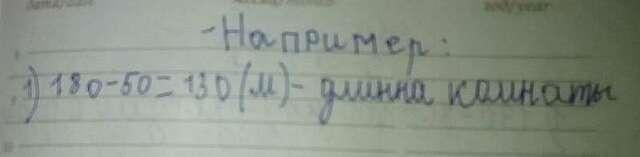 -Например:
1) 180-50=130(м)- длинна комнаты